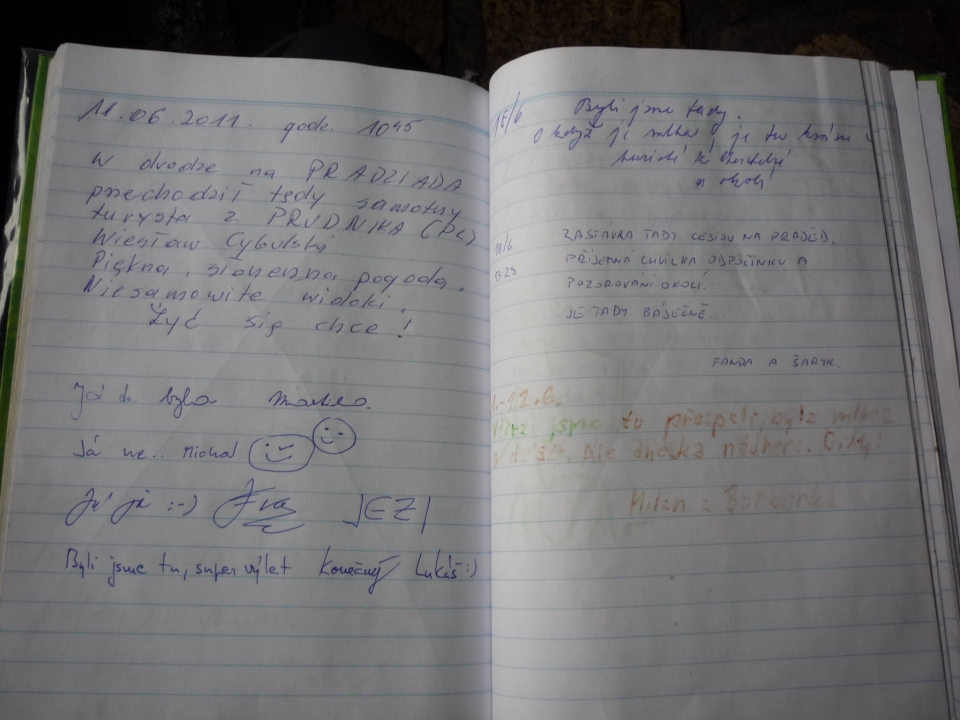 11.06.2011. godz. 1045
W drodze na PRADZIADA
przechodził tędy samotny
turysta z PRUDNIKA (PL)
Wiesław Cybulski.
Piękna, słoneczna pogoda.
Niesamowite widoki.
Żyć się chce!
Já tu byla
Já ne.. Michal
Já já :-) JEZI
Byli jsme tu, super výlet Konečný Lukáš :)
Byli jsme tady.
O když je mlha, je tu krásně
a okolí
18/6. ZASTÁVKA TADY CESTOU NA PRADĚD.
13:29 PŘÍJEMNÁ CHVILKA ODPOČINKU A
POZOROVÁNÍ OKOLÍ.
JE TADY BÁJEČNĚ...
FANDA A ŠARYK.
12.6.
Včera jsme tu přespali, byla mlha
a déšť. Ale dneska nádhera. Díky!
Milan z Barborka